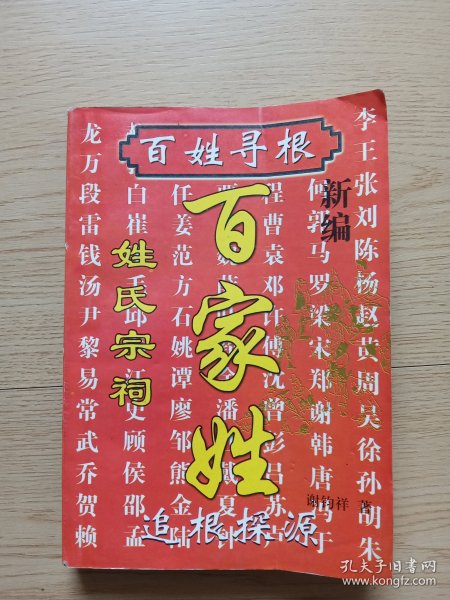 百姓寻根
新编
百家姓
姓氏宗祠
追根探源
谢钧祥 著
李王张刘陈杨赵黄周吴徐孙胡朱
何郭马罗梁宋郑谢韩唐冯于
程曹袁邓许傅沈曾彭吕苏卢
潘戴夏钟
任姜范方石姚谭廖邹熊金陆
白崔
邱
江史顾侯邵孟
龙万段雷钱汤尹黎易常武乔贺赖
孔夫子旧书网
www.kongfz.com